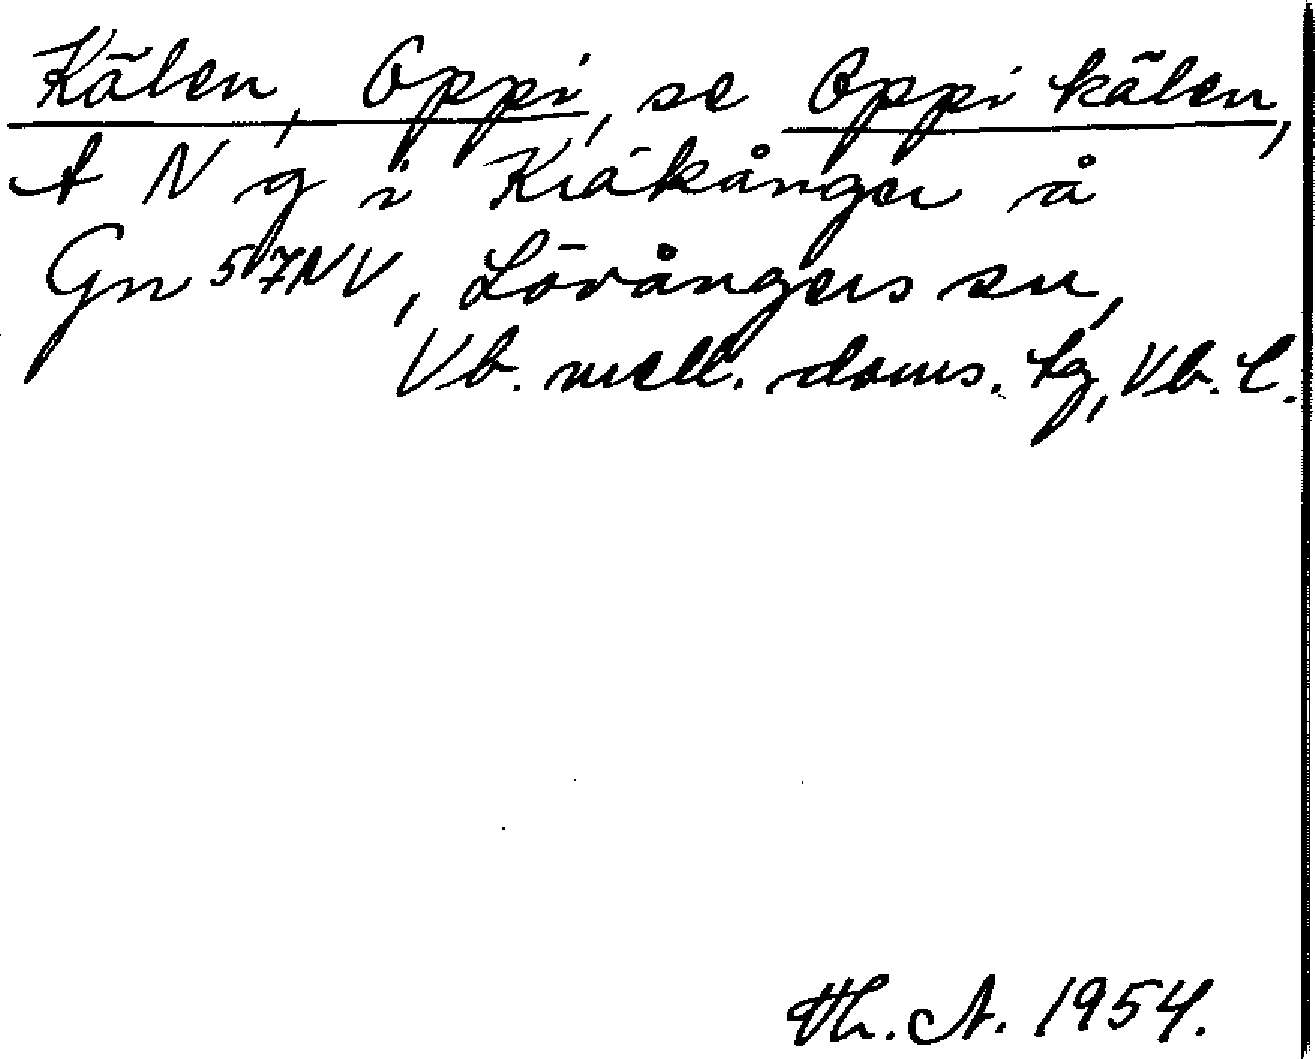 Kälen, Oppi, se Oppi kälen,
t N g i Kräkånger å
Gn 57NV, Lövångers sn,
Vb. mell. doms. tg, Vb. l.
Th. A. 1954.